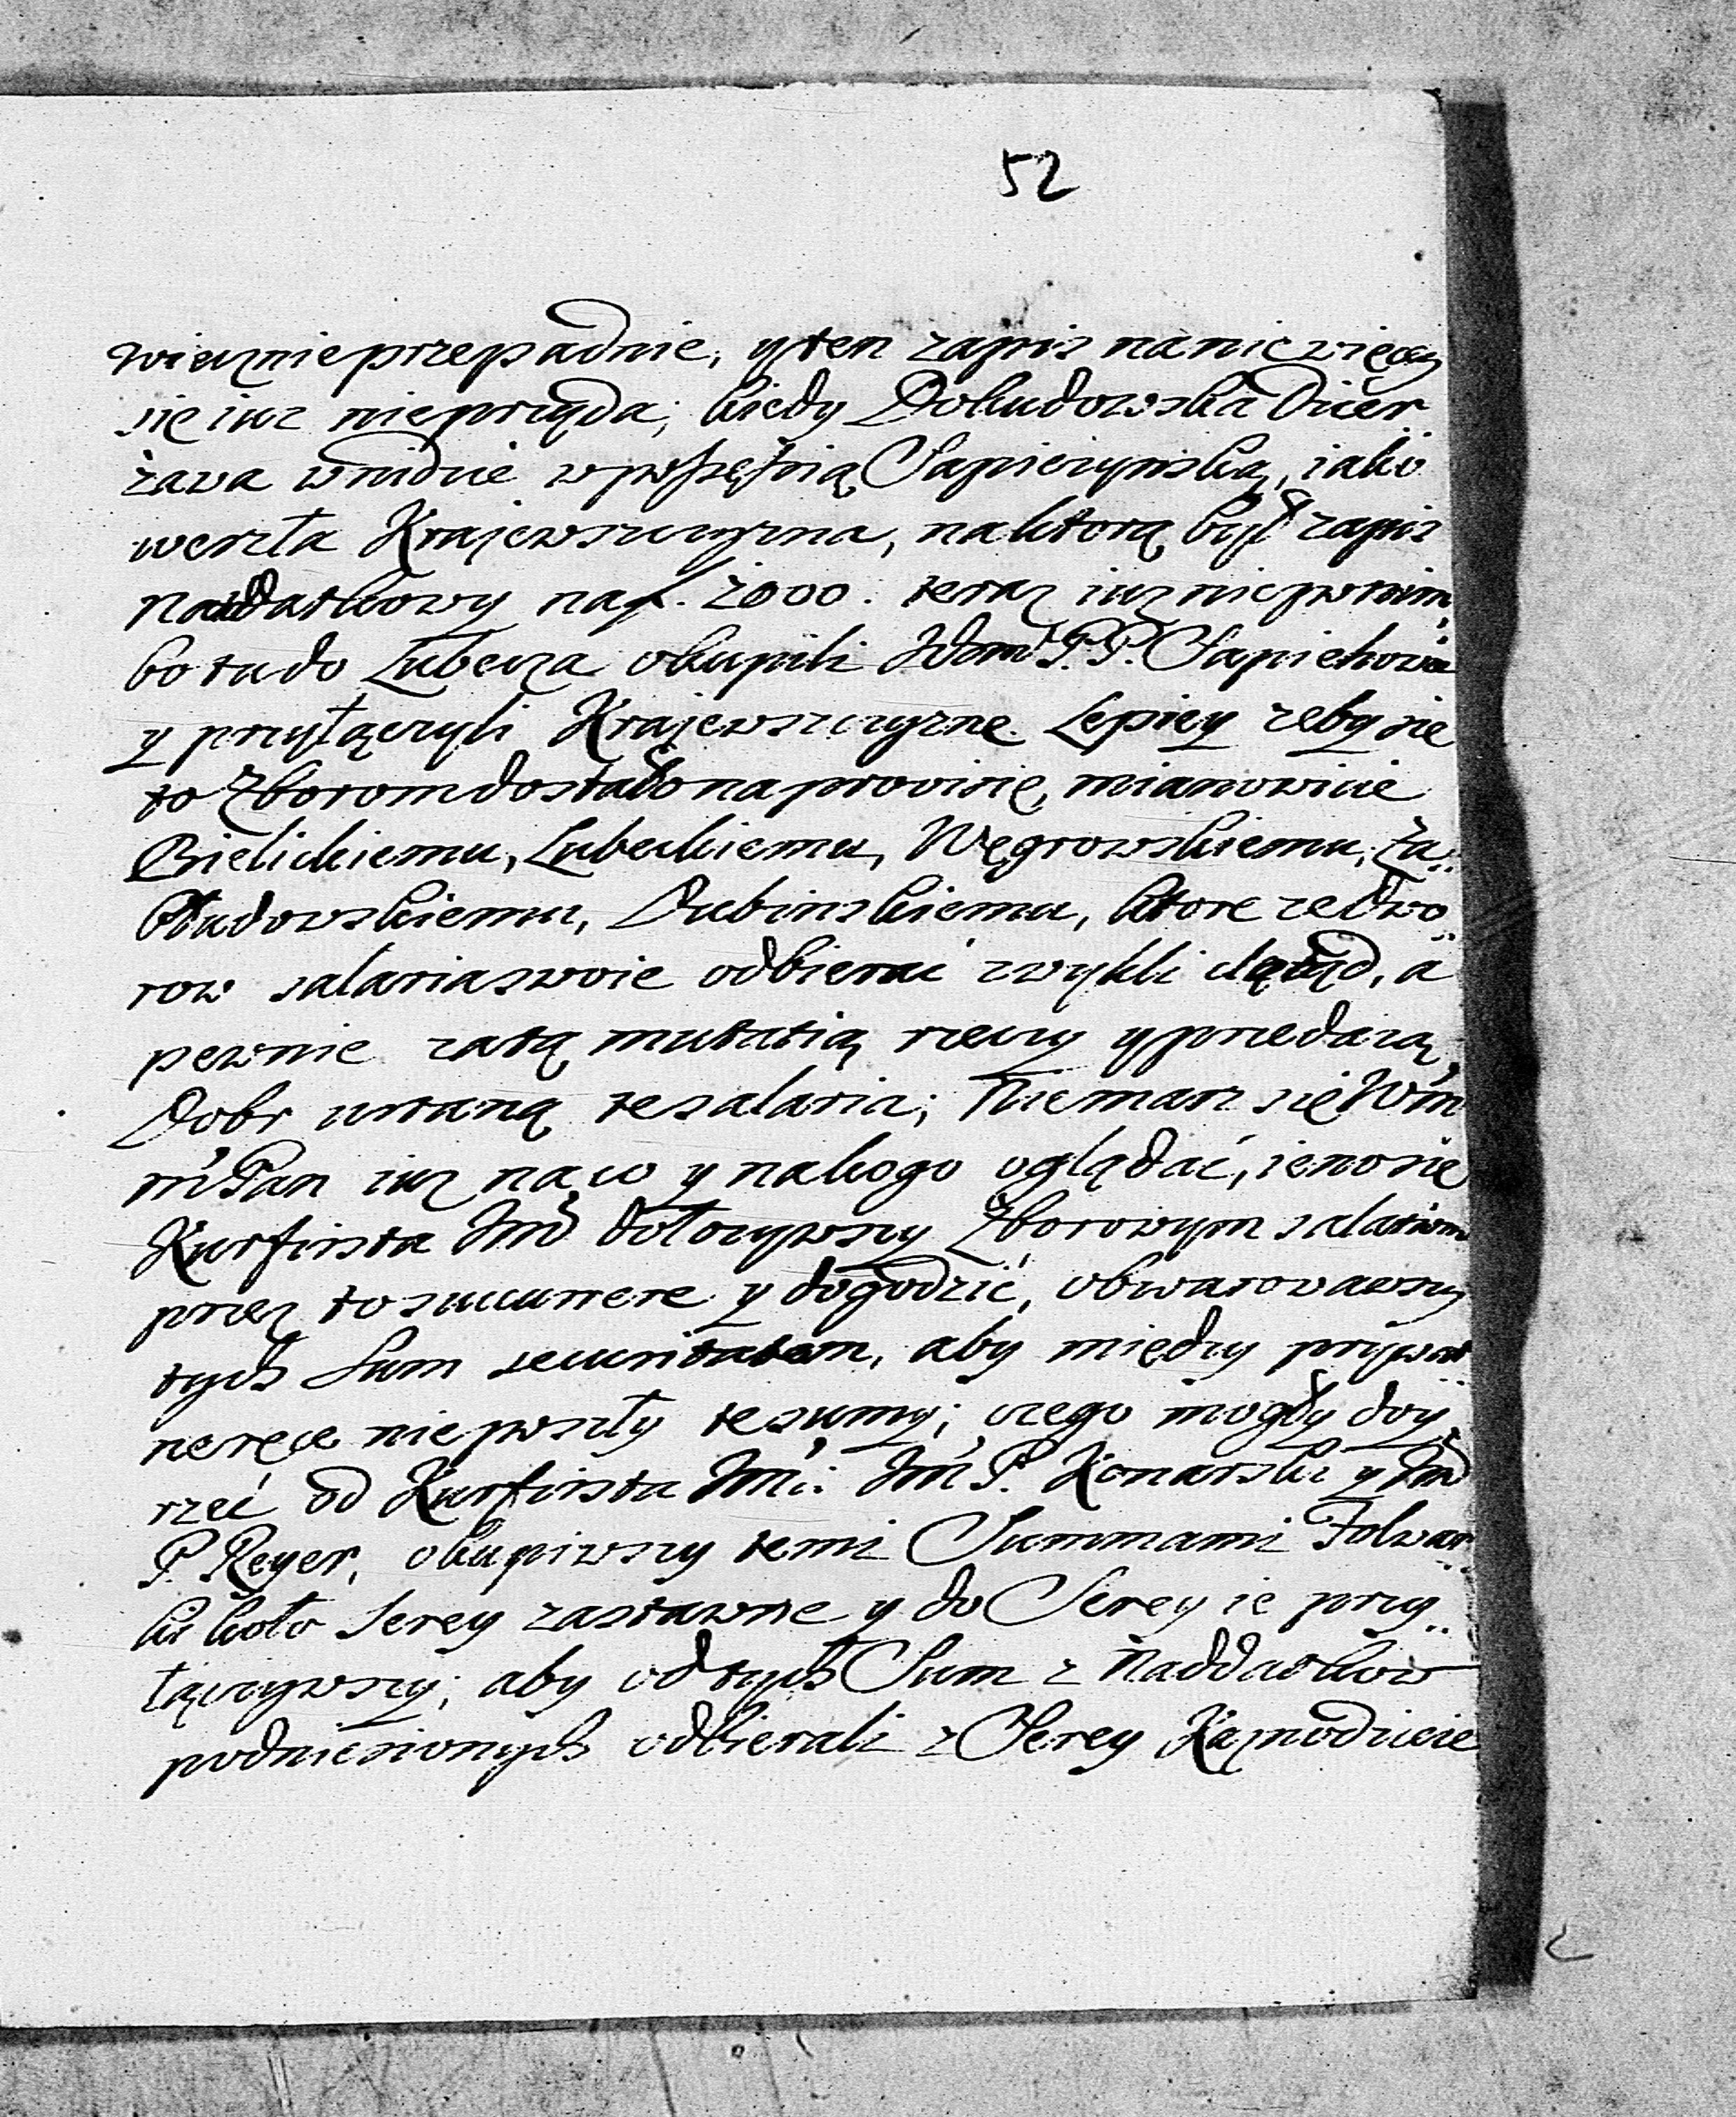 52
wiecznie przepadnie, y ten zapis na nic więcey
się iuz nie przyda; kiedy Dokudowska Dzier
żawa wnidzie w possessią Sapieżynską, iako
weszła Krajewszczyzna, na ktorą był zapis
Naddatkowy na f. 2000. teraz iuz nic po nim,
bo ta do Lubcza okupili Ichm̃ P.P. Sapiehowie
y przyłączyli Krajewszczyznę. Lepiey zeby się
to Zborom dostało na provisię, mianowicie
Bielickiemu, Lubeckiemu, Węgrowskiemu, Za..
bludowskiemu, Dubinskiemu, ktore ze dwo..
row salaria swoie odbierać zwykli dotąd, a
pewnie za tą mutatią rzeczy y przedazą
Dobr ustaną te salaria; Nie masz się Wm̃
m̃ Pan iuz na co y na kogo oglądać, ieno się
Kurfirsta Im̃ dołozywszy Zborowym salariom
przez to succurrere y dogodzić, obwarowawszy
tych Sum securitatem, aby między prywat..
ne ręce nie poszły te sumy; czego mogły doy..
rzeć od Kurfirsta Im̃ci: Im̃ P. Konarski y Im̃
P. Reyer, okupiwszy temi Summami Folwar..
ki koło Serey zastawne y do Serey ie przy..
łączywszy; aby od tych Sum z Naddatkow
podniesionych odbierali z Serey Kaznodzieie